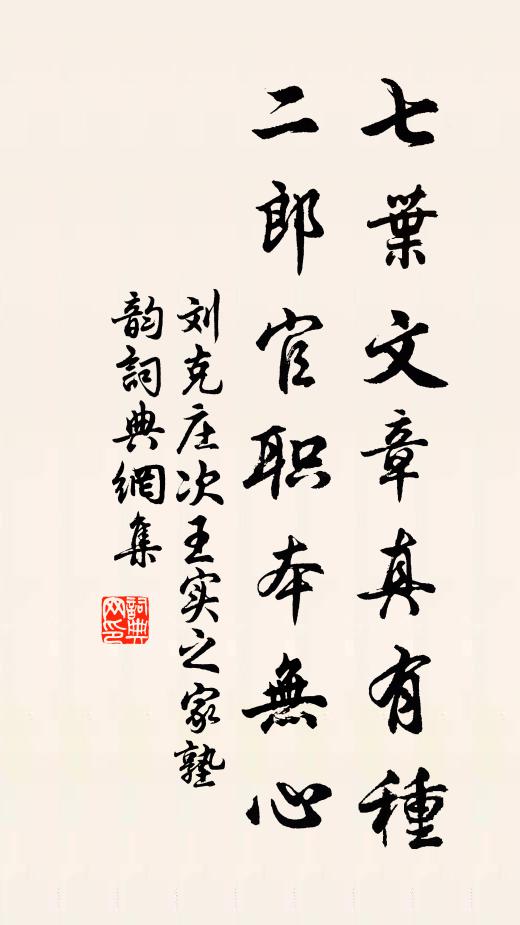 七葉文章真有種
二郎官职本無心
刘克庄次王实之家塾
韵詞典網集
詞典
网印